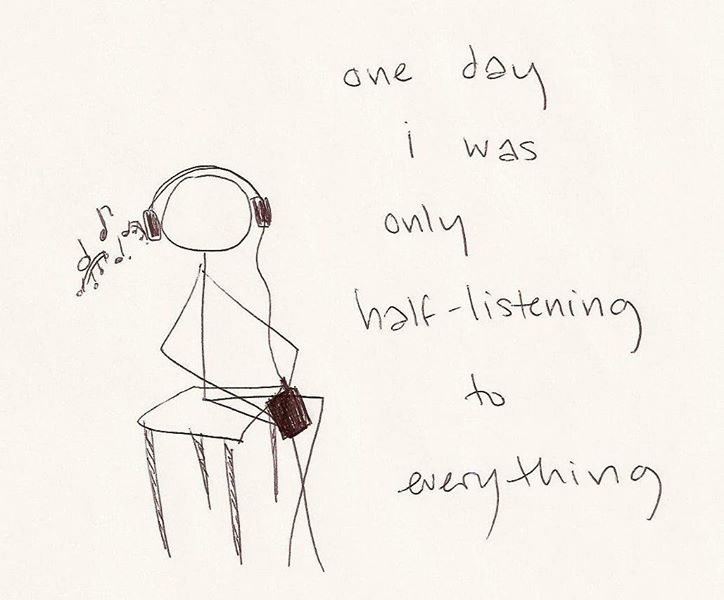 one day
i was
only
half-listening
to
everything